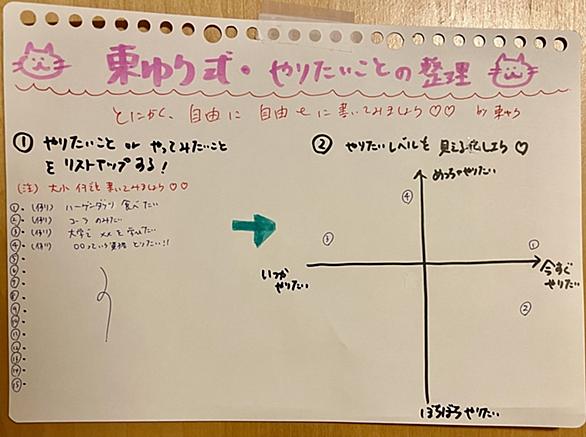 東ゆり式・やりたいことの整理
とにかく、自由に 自由に書いてみましょう♡♡ by 東ゆり
① やりたいこと or やってみたいこと
をリストアップする!
(注) 大小 何でも書いてみましょう♡♡
①・(例) ハーゲンダッツ 食べたい
②・(例) コーラ のみたい
③・(例) 大学で ××を学びたい
④・(例) 〇〇っていう資格 とりたい!!
⑤・
⑥・
⑦・
⑧・
⑨・
⑩・
⑪・
⑫・
⑬・
⑭・
⑮・
② やりたいレベルを 見える化しよう♡
めっちゃやりたい
④
③
①
いつか
やりたい
今すぐ
やりたい
②
ぼちぼちやりたい